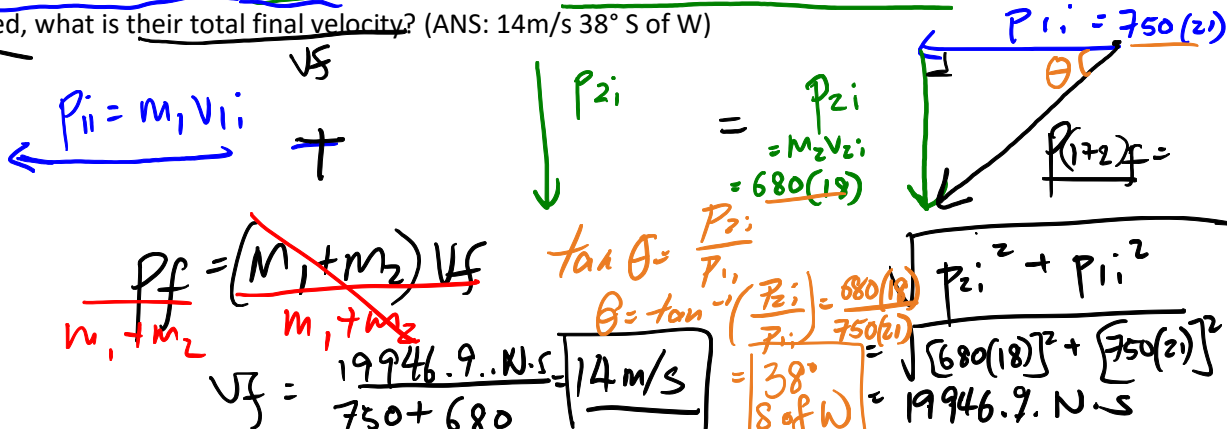 ed, what is their total final velocity? (ANS: 14m/s 38° S of W)
vf
P1i = 750(21)
θ
P1i = m1 v1i
+
P2i
=
P2i
= M2V2i
= 680(18)
P(1+2)f =
Pf = (M1+m2) Vf
m1+m2 m1+m2
tan θ = P2i/P1i
θ = tan⁻¹(P2i/P1i) = 680(18)/750(21)
= 38° S of W
√P2i² + P1i²
= √[680(18)]² + [750(21)]²
= 19946.9.. N.s
Vf = 19946.9..N.s/750+680 = 14 m/s